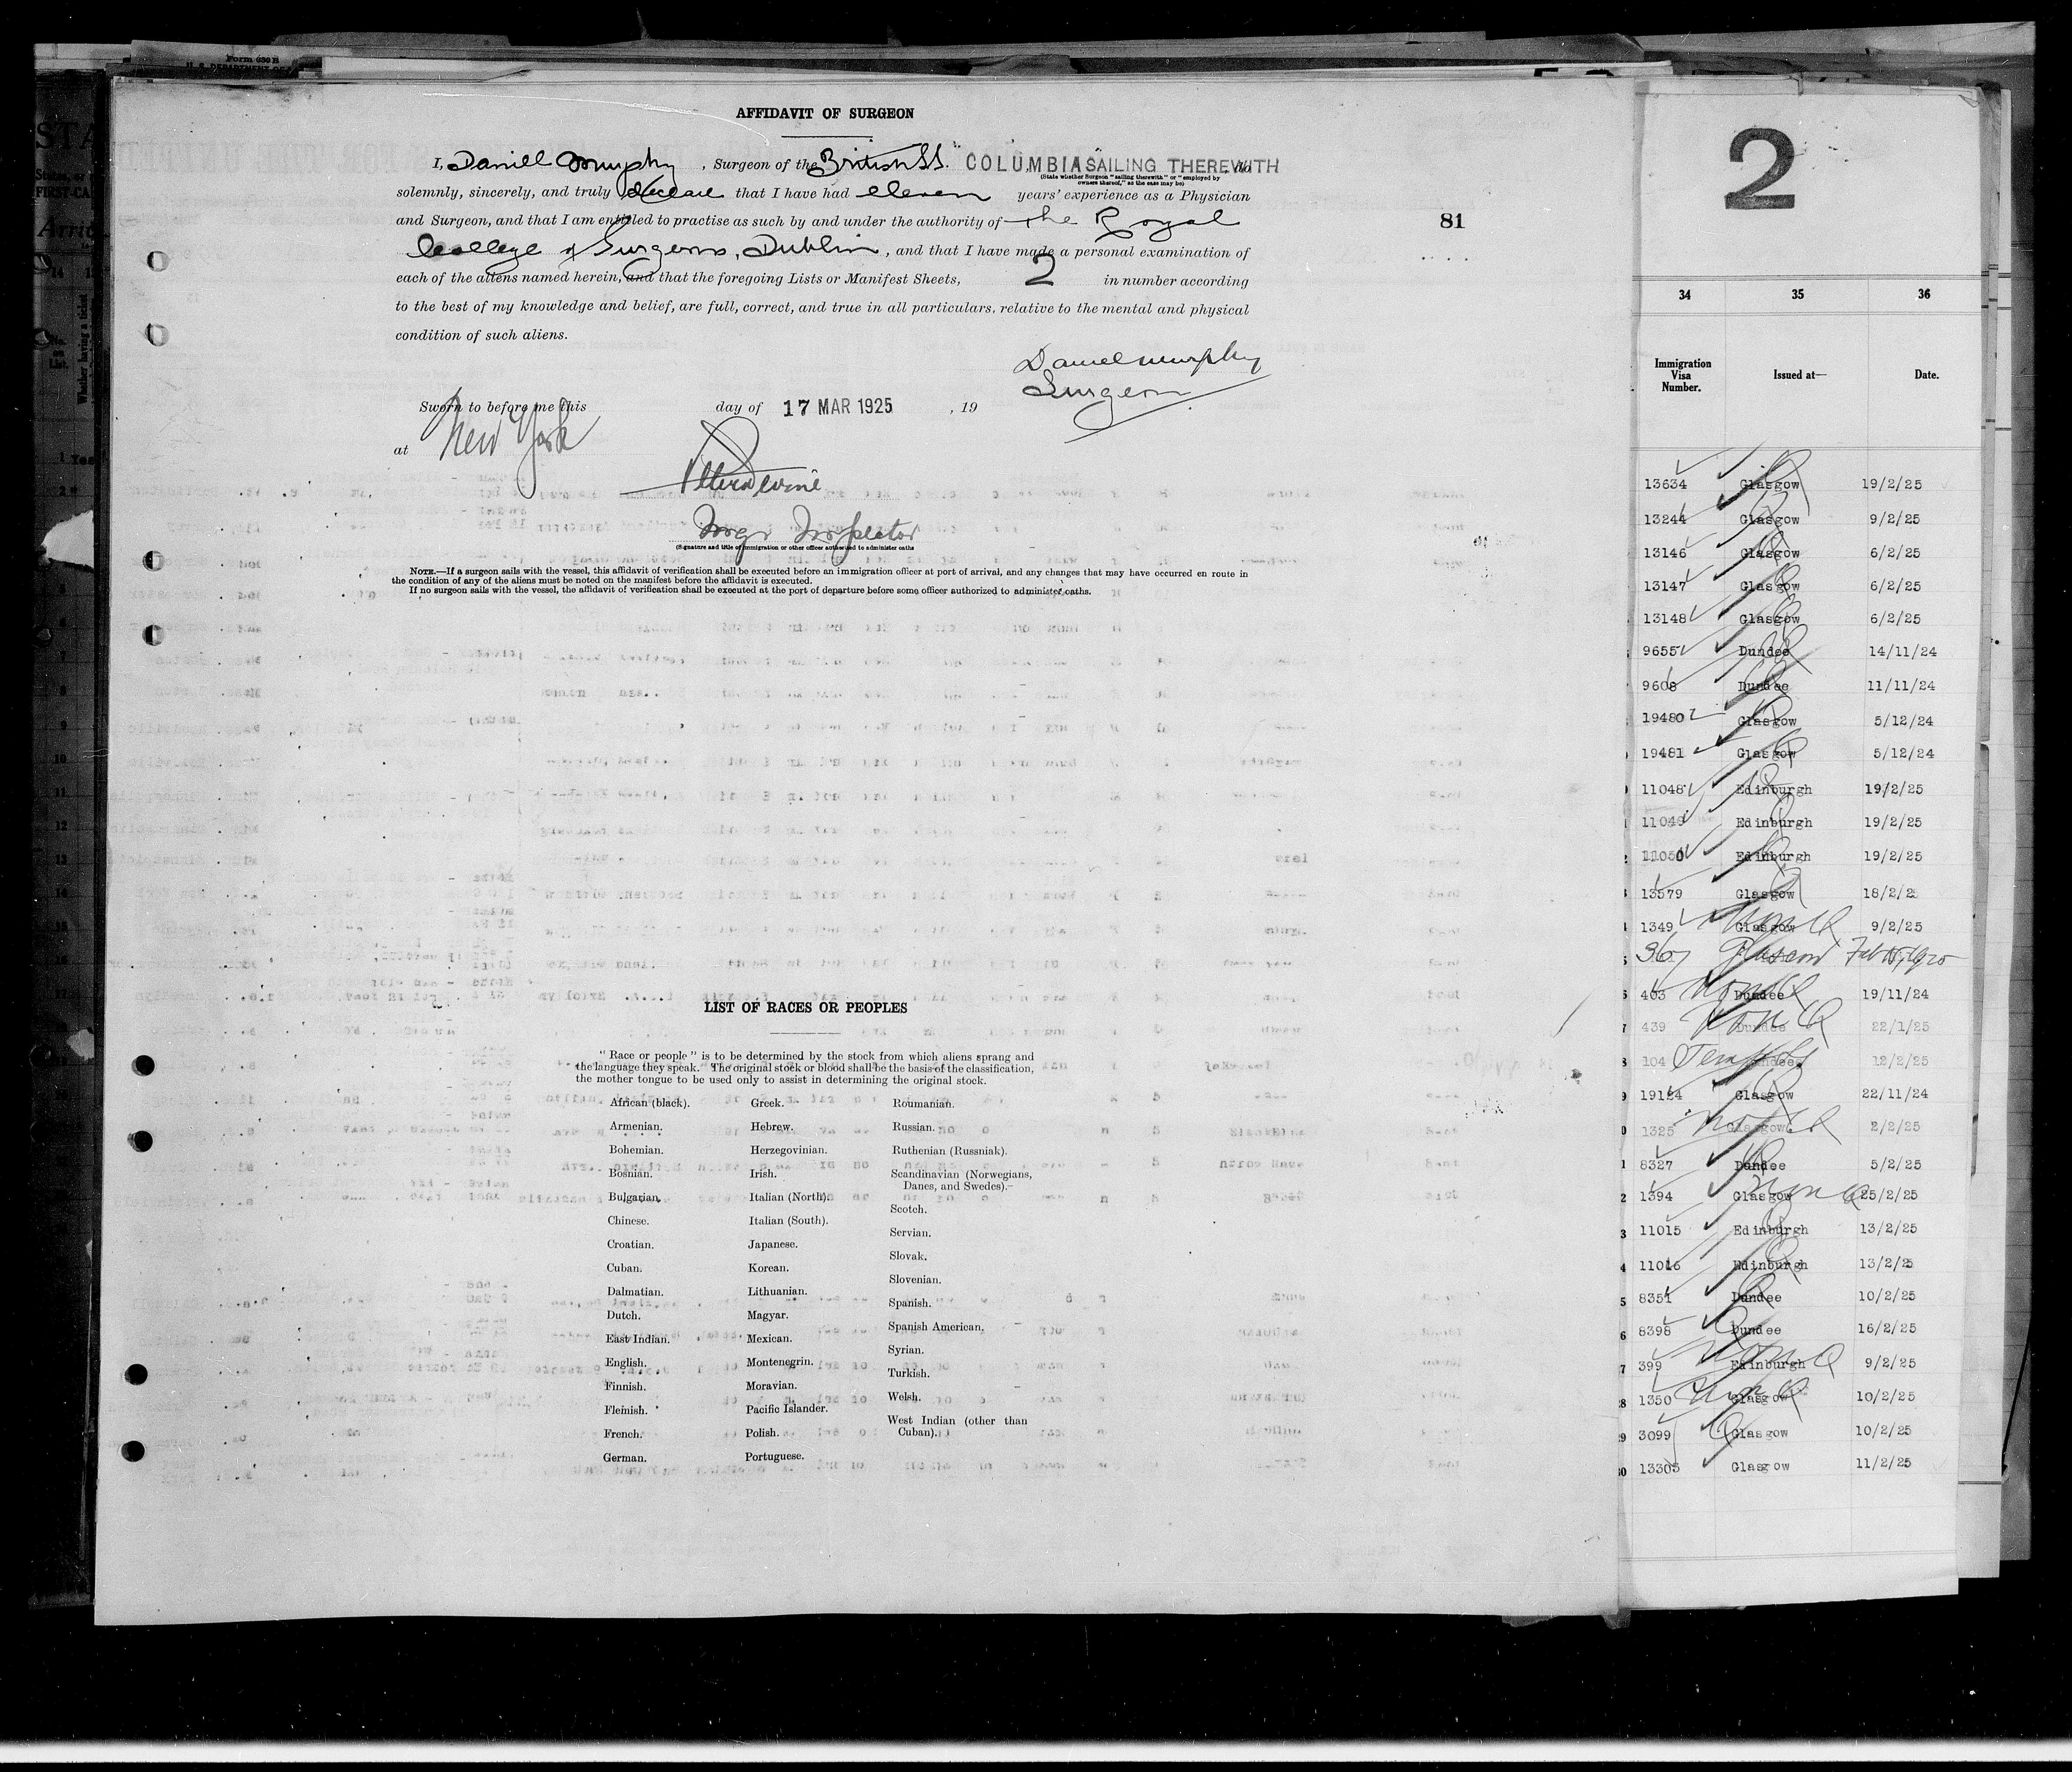 Form 630 B
U. S. DEPARTMENT OF
AFFIDAVIT OF SURGEON
I, Daniell Murphy, Surgeon of the British SS. "COLUMBIA SAILING THEREWITH
(State whether Surgeon "sailing therewith" or "employed by
owners thereof," as the case may be)
solemnly, sincerely, and truly declare that I have had eleven years' experience as a Physician
and Surgeon, and that I am entitled to practise as such by and under the authority of the Royal
College of Surgeons, Dublin, and that I have made a personal examination of
each of the aliens named herein, and that the foregoing Lists or Manifest Sheets, 2 in number according
to the best of my knowledge and belief, are full, correct, and true in all particulars, relative to the mental and physical
condition of such aliens.
Daniel Murphy
Surgeon
Sworn to before me this day of 17 MAR 1925, 19
at New York
Inspector
(Signature and title of immigration or other officer authorized to administer oaths
NOTE.—If a surgeon sails with the vessel, this affidavit of verification shall be executed before an immigration officer at port of arrival, and any changes that may have occurred en route in
the condition of any of the aliens must be noted on the manifest before the affidavit is executed.
If no surgeon sails with the vessel, the affidavit of verification shall be executed at the port of departure before some officer authorized to administer oaths.
81
LIST OF RACES OR PEOPLES
"Race or people" is to be determined by the stock from which aliens sprang and
the language they speak. The original stock or blood shall be the basis of the classification,
the mother tongue to be used only to assist in determining the original stock.
African (black).
Armenian.
Bohemian.
Bosnian.
Bulgarian.
Chinese.
Croatian.
Cuban.
Dalmatian.
Dutch.
East Indian.
English.
Finnish.
Flemish.
French.
German.
Greek.
Hebrew.
Herzegovinian.
Irish.
Italian (North).
Italian (South).
Japanese.
Korean.
Lithuanian.
Magyar.
Mexican.
Montenegrin.
Moravian.
Pacific Islander.
Polish.
Portuguese.
Roumanian.
Russian.
Ruthenian (Russniak).
Scandinavian (Norwegians,
Danes, and Swedes).
Scotch.
Servian.
Slovak.
Slovenian.
Spanish.
Spanish American.
Syrian.
Turkish.
Welsh.
West Indian (other than
Cuban).
2
34 35 36
Immigration Visa Number. Issued at— Date.
13634 Glasgow 19/2/25
13244 Glasgow 9/2/25
13146 Glasgow 6/2/25
13147 Glasgow 6/2/25
13148 Glasgow 6/2/25
9655 Dundee 14/11/24
9608 Dundee 11/11/24
19480 Glasgow 5/12/24
19481 Glasgow 5/12/24
11048 Edinburgh 19/2/25
11049 Edinburgh 19/2/25
11050 Edinburgh 19/2/25
13579 Glasgow 18/2/2
1349 Glasgow 9/2/25
367 Glasgow
403 Dundee 19/11/24
439 Dundee 22/1/25
104 Dundee 12/2/25
19124 Glasgow 22/11/24
1325 Glasgow 2/2/25
8327 Dundee 5/2/25
1394 Glasgow 25/2/25
11015 Edinburgh 13/2/25
11016 Edinburgh 13/2/25
8351 Dundee 10/2/25
8398 Dundee 16/2/25
399 Edinburgh 9/2/25
1350 Glasgow 10/2/25
3099 Glasgow 10/2/25
13303 Glasgow 11/2/25